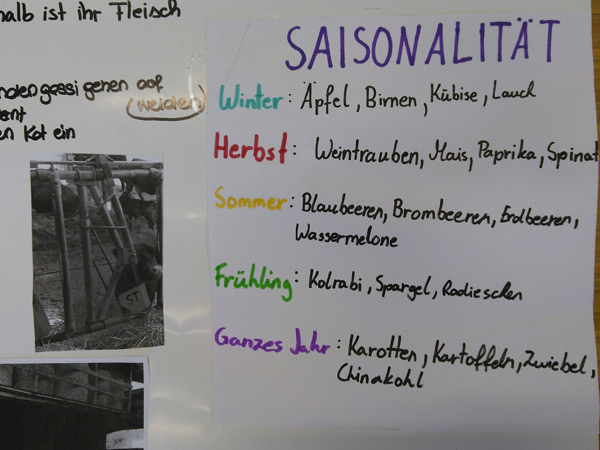 halb ist ihr Fleisch
gassi gehen auf
(weiden)
en Kot ein
ST
SAISONALITÄT
Winter: Äpfel, Birnen, Kübise, Lauch
Herbst: Weintrauben, Mais, Paprika, Spinat
Sommer: Blaubeeren, Brombeeren, Erdbeeren,
Wassermelone
Frühling: Kolrabi, Spargel, Radieschen
Ganzes Jahr: Karotten, Kartoffeln, Zwiebel,
Chinakohl